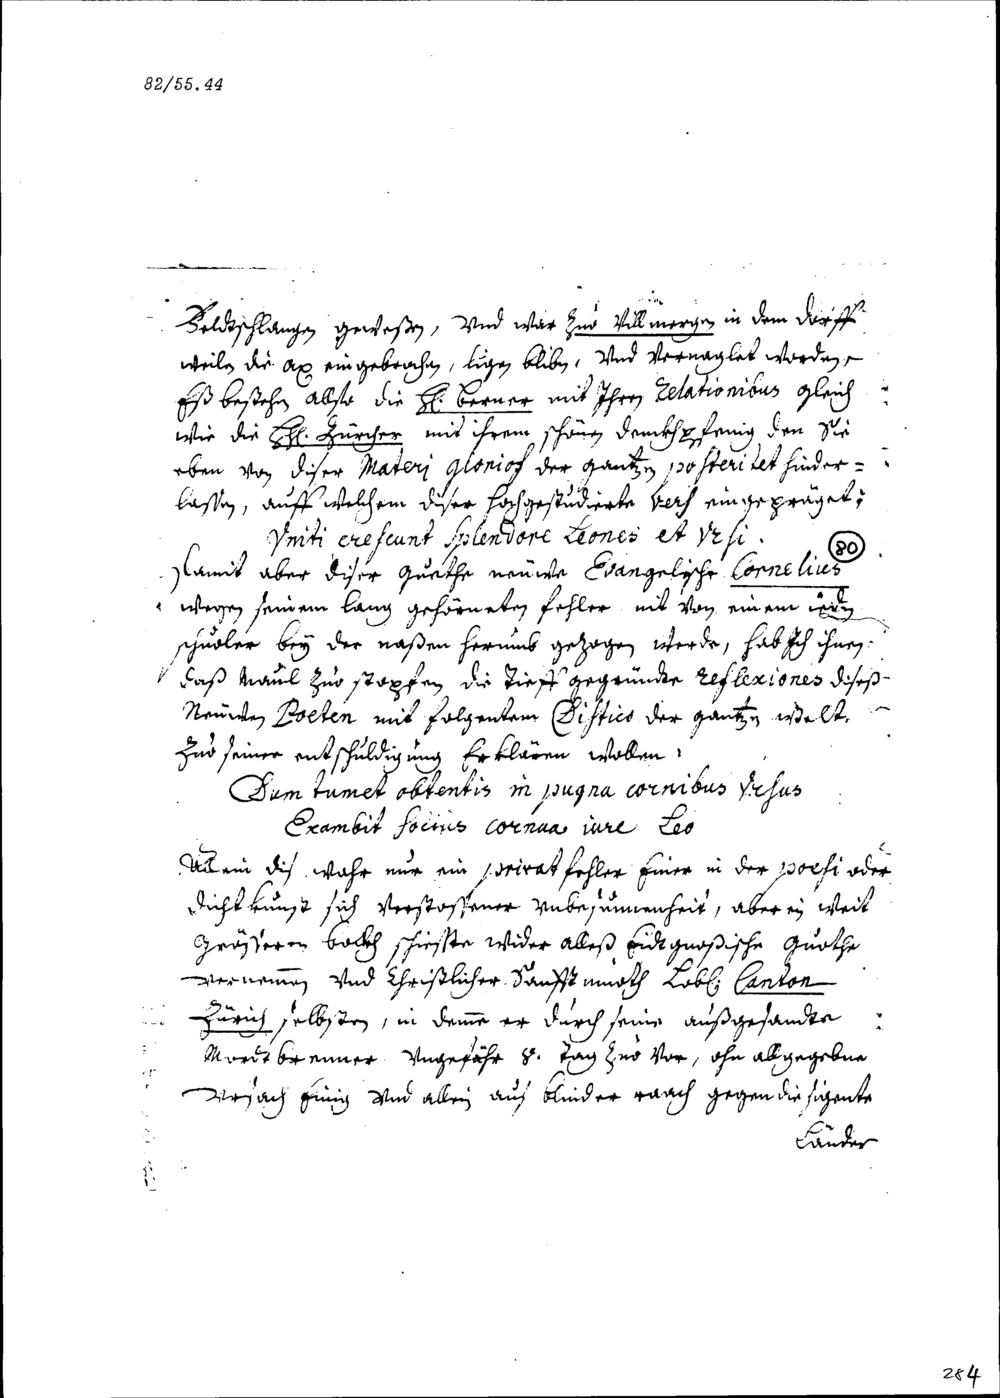 82/55.44
Veldtschlangen geweßen, Vnd war Zuo Villmergen in dem dorff
weilen die ax eingebrochen, ligen bliben, Vnd Vernaglet worden,
Eß bestehen allso die HH. Berner mit Ihren Relationibus gleich
wie die HH. Zürcher mit ihrem schönen denckhpfenig den Sie
eben von diser Materj glorios der gantzen posteritet hinder=
lassen, auff welchem diser hochgestudierte Vers eingepräget:
Vniti crescunt splendore Leones et Vrsi.
80
Damit aber diser guethe neuwe Evangelische Cornelius
wegen seinem lang gehörneten fehler nit von einem jeden
schuoler bey der naßen herumb gezogen werde, hab Ich ihnen
daß Maul Zuo stopfen die tieff gegründte reflexiones diseß
Neuwen Poeten mit folgentem Distico der gantzen weldt
Zuo seiner entschuldigung Erklären wollen:
Dum tumet obtentis in pugna cornibus Vrsus
Exambit socius cornua iure Leo
Allein dis wahr nur ein privat fehler Einer in der poesi oder
dicht kunst sich Verstossener Vnbesunnenheit, aber ein weit
Grösseren bockh schiesste wider alleß Eidtgnoßische guothe
vernemmen Vnd Christlicher Sanfftmuoth Lobl: Canton
Zürich selbsten, in deme er durch seine außgesandte
Mordtbrenner Vngefähr 8. tag Zuo Vor, ohn abgegebne
Vrsach Einig Vnd allein aus blinder raach gegen die
Länder
284